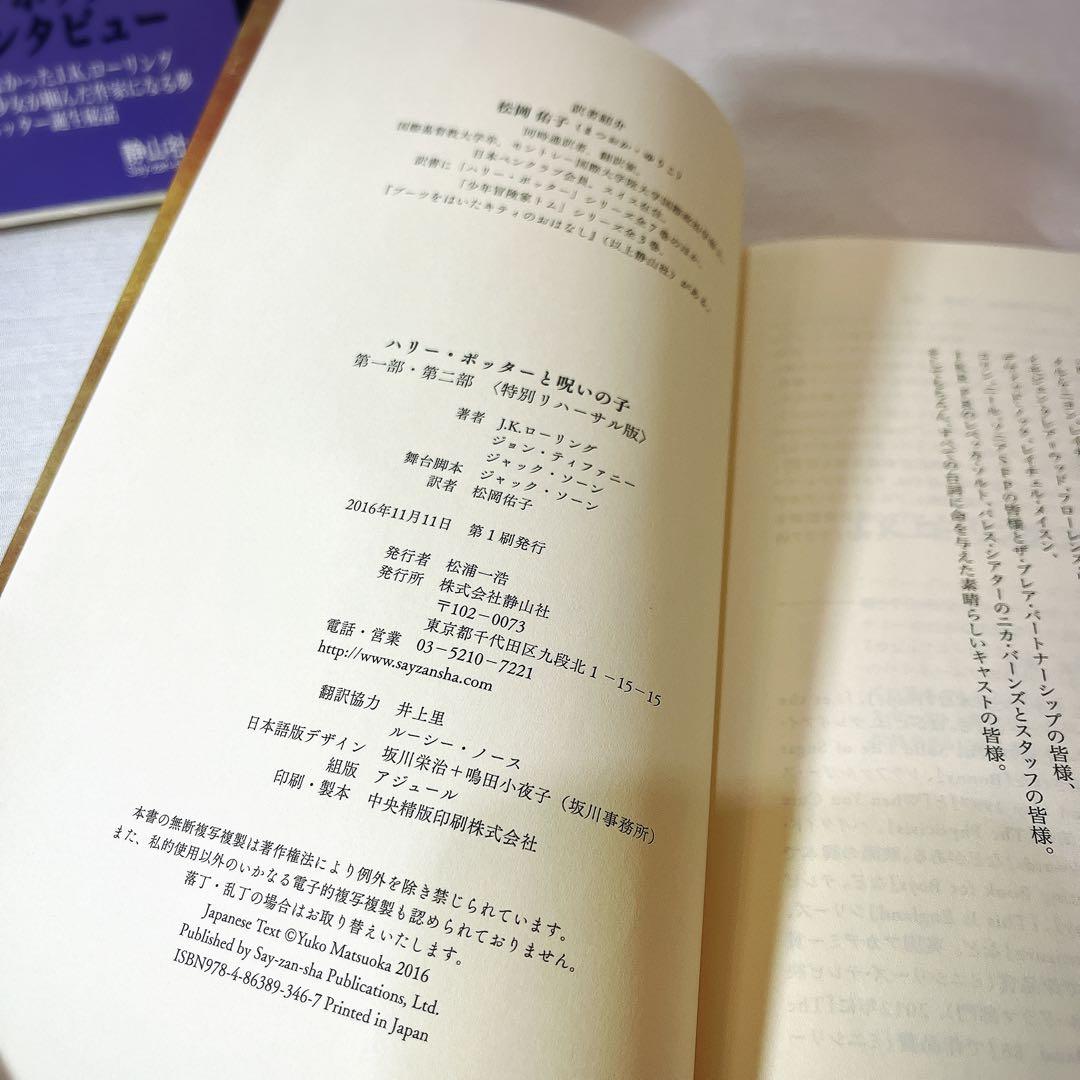 ンタビュー
かったJ.K.ローリング
少女が掴んだ作家になる夢
ッター誕生秘話
静山社
訳者紹介
松岡 佑子（まつおか・ゆうこ）
同時通訳者、翻訳家。
国際基督教大学卒、モントレー国際大学院大学国際政治学修士。
日本ペンクラブ会員。スイス在住。
訳書に「ハリー・ポッター」シリーズ全7巻のほか、
「少年冒険家トム」シリーズ全3巻、
『ブーツをはいたキティのおはなし』（以上静山社）がある。
ハリー・ポッターと呪いの子
第一部・第二部 〈特別リハーサル版〉
著者 J.K.ローリング
ジョン・ティファニー
ジャック・ソーン
舞台脚本 ジャック・ソーン
訳者 松岡佑子
2016年11月11日 第1刷発行
発行者 松浦一浩
発行所 株式会社静山社
〒102-0073
東京都千代田区九段北1-15-15
電話・営業 03-5210-7221
http://www.sayzansha.com
翻訳協力 井上里
ルーシー・ノース
日本語版デザイン 坂川栄治＋鳴田小夜子（坂川事務所）
組版 アジュール
印刷・製本 中央精版印刷株式会社
本書の無断複写複製は著作権法により例外を除き禁じられています。
また、私的使用以外のいかなる電子的複写複製も認められておりません。
落丁・乱丁の場合はお取り替えいたします。
Japanese Text ©Yuko Matsuoka 2016
Published by Say-zan-sha Publications, Ltd.
ISBN978-4-86389-346-7 Printed in Japan
パートナーシップの皆様、
パレス・シアターのニカ・バーンズとスタッフの皆様。
台詞に命を与えた素晴らしいキャストの皆様。